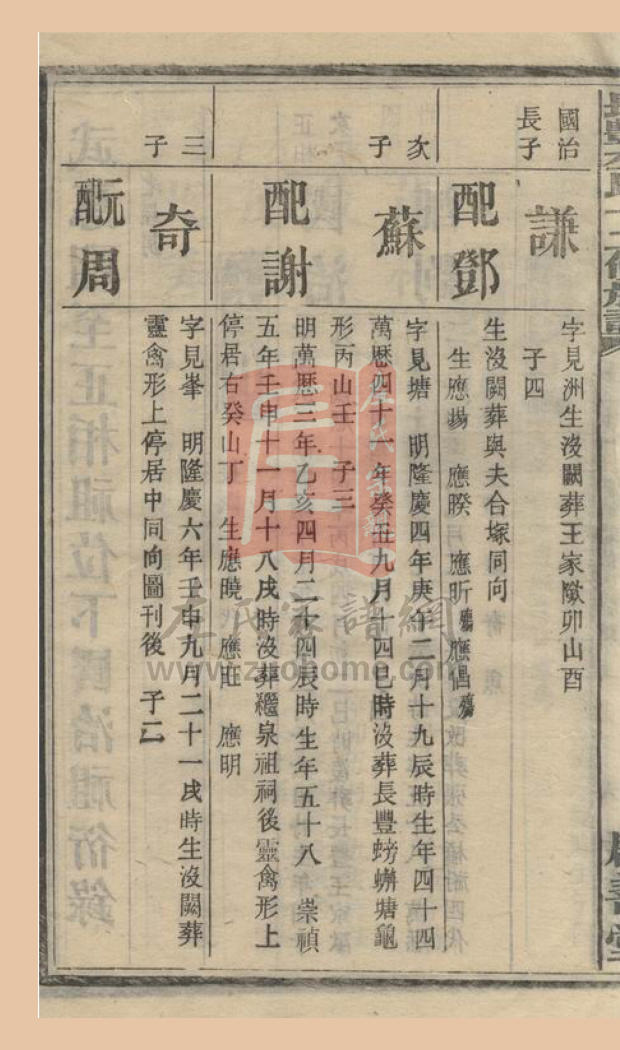 國治
長子
謙
字見洲生沒闕葬王家歘卯山酉
子四
配鄧
生沒闕葬與夫合塚同向
生應揚 應暌 應昕殤應倡殤
次子
蘇
字見塘 明隆慶四年庚午二月十九辰時生年四十四
萬歷四十一年癸丑九月十四巳時沒葬長豐螃蠏塘龜
形丙山壬 子三
配謝
明萬歷三年乙亥四月二十四辰時生年五十八 崇禎
五年壬申十一月十八戌時沒葬繼泉祖祠後靈禽形上
停居右癸山丁 生應曉 應旺 應明
三子
奇
字見峯 明隆慶六年壬申九月二十一戌時生沒闕葬
靈禽形上停居中同向圖刊後 子二
元配周
左氏家譜網